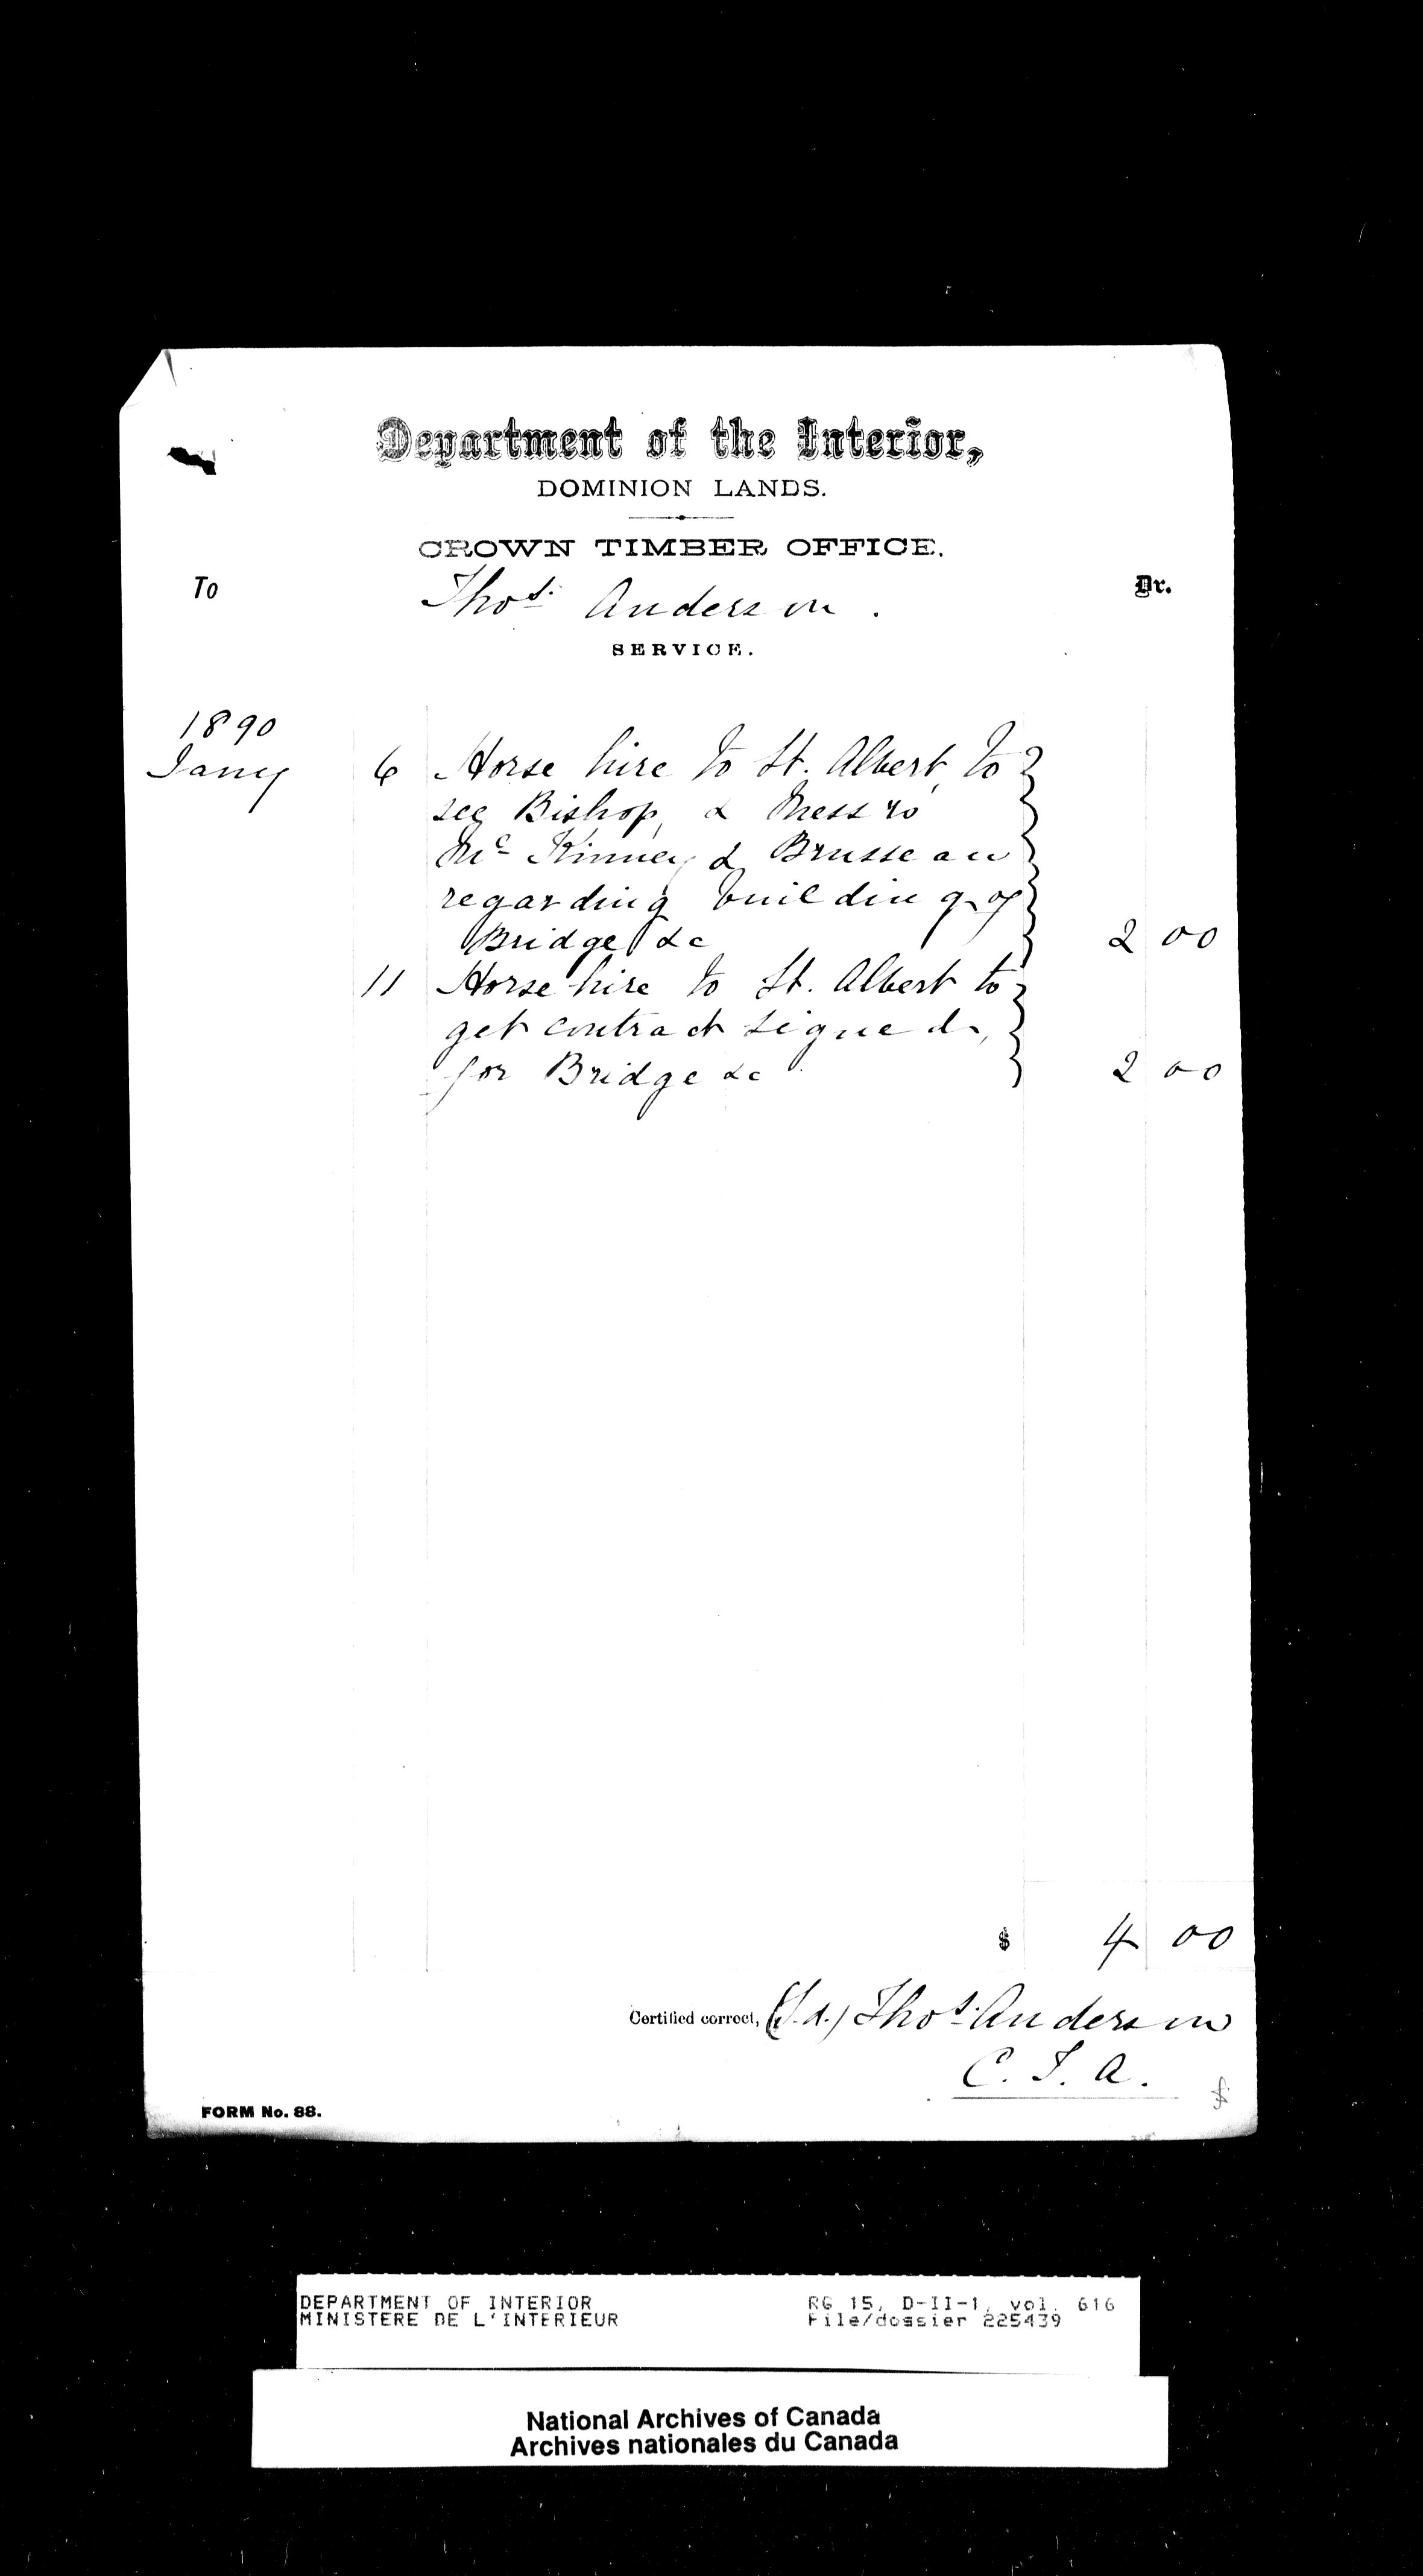 Department of the Interior,
DOMINION LANDS.
CROWN TIMBER OFFICE.
To Thos. Anderson. Dr.
SERVICE.
1890
Jany 6 Horse hire to St. Albert, to
see Bishop, & Messrs
Mc Kinney & Brusseau
regarding building of
Bridge &c 2 00
11 Horse hire to St. Albert to
get contract signed,
for Bridge &c 2 00
$ 4 00
Certified correct, (Sd.) Thos. Anderson
C. T. A.
FORM No. 88.
DEPARTMENT OF INTERIOR RG 15, D-II-1, vol. 616
MINISTERE DE L'INTERIEUR File/dossier 225439
National Archives of Canada
Archives nationales du Canada